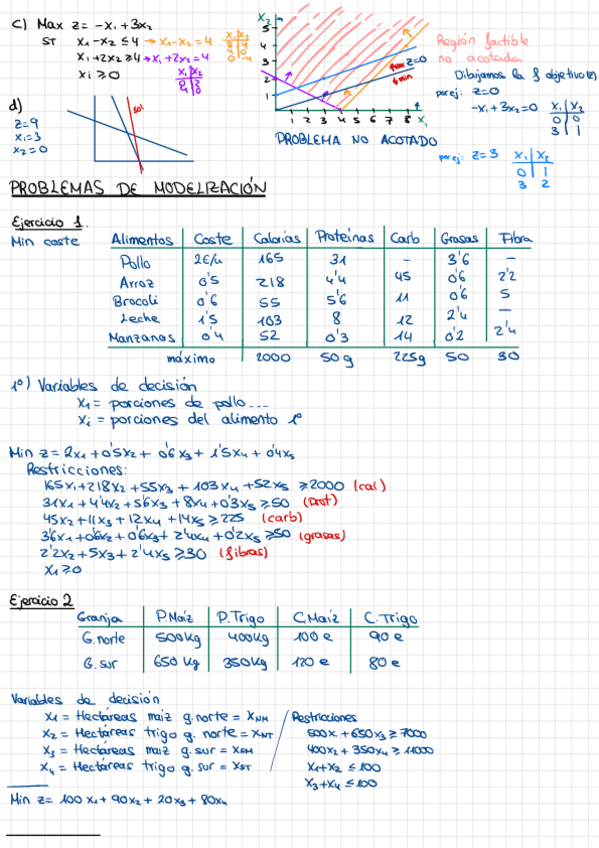 c) Max z = -x₁ + 3x₂
ST x₁ - x₂ ≤ 4 → x₁ - x₂ = 4
x₁ + 2x₂ ≥ 4 → x₁ + 2x₂ = 4
xi ≥ 0
x₁ x₂
x₂
5
4
3
2
1
1 2 3 4 5 6 7 8 x₁
z=0
min
PROBLEMA NO ACOTADO
Región factible
no acotada
Dibujamos la f objetivo (z)
por ej: z=0
-x₁ + 3x₂ = 0
x₁ x₂
0 0
3 1
por ej: z=3
x₁ x₂
0 1
3 2
d)
z=9
x₁=3
x₂=0
sol
PROBLEMAS DE MODELIZACIÓN
Ejercicio 1.
Min coste
Alimentos Coste Calorías Proteínas Carb Grasas Fibra
Pollo 2€/u 165 31 - 3'6 -
Arroz 0'5 218 4'4 45 0'6 2'2
Brocoli 0'6 55 5'6 11 0'6 5
Leche 1'5 103 8 12 2'4 -
Manzanas 0'4 52 0'3 14 0'2 2'4
máximo 2000 50g 225g 50 30
1º) Variables de decisión
x₁ = porciones de pollo...
xi = porciones del alimento 1º
Min z = 2x₁ + 0'5x₂ + 0'6x₃ + 1'5x₄ + 0'4x₅
Restricciones:
165x₁ + 218x₂ + 55x₃ + 103x₄ + 52x₅ ≥ 2000 (cal)
31x₁ + 4'4x₂ + 5'6x₃ + 8x₄ + 0'3x₅ ≥ 50 (prot)
45x₂ + 11x₃ + 12x₄ + 14x₅ ≥ 225 (carb)
3'6x₁ + 0'6x₂ + 0'6x₃ + 2'4x₄ + 0'2x₅ ≥ 50 (grasas)
2'2x₂ + 5x₃ + 2'4x₅ ≥ 30 (fibras)
x₁ ≥ 0
Ejercicio 2
Granja P.Maíz P.Trigo C.Maíz C.Trigo
G.norte 500kg 400kg 100 e 90 e
G.sur 650 kg 350kg 120 e 80 e
Variables de decisión
x₁ = Hectáreas maiz g.norte = x_NM
x₂ = Hectáreas trigo g. norte = x_NT
x₃ = Hectáreas maiz g.sur = x_SM
x₄ = Hectáreas trigo g.sur = x_ST
Restricciones
500x + 650x₃ ≥ 7000
400x₂ + 350x₄ ≥ 11000
x₁ + x₂ ≤ 100
x₃ + x₄ ≤ 100
Min z = 100x₁ + 90x₂ + 20x₃ + 80x₄